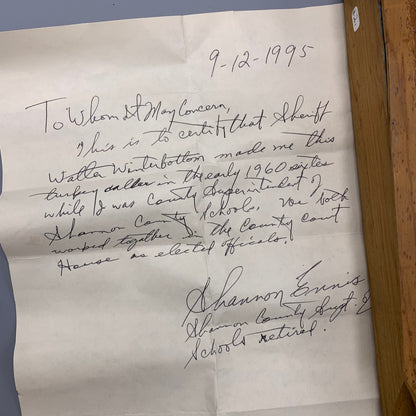 9-12-1995
To Whom It May Concern,
This is to certify that Sheriff
Walter Winterbottom made me this
turkey caller in the early 1960 sixtes
while I was County Superintendent of
Shannon County Schools. We both
worked together in the County Court
House as elected officals.
Shannon Ennis
Shannon County Supt. of
Schools retired.